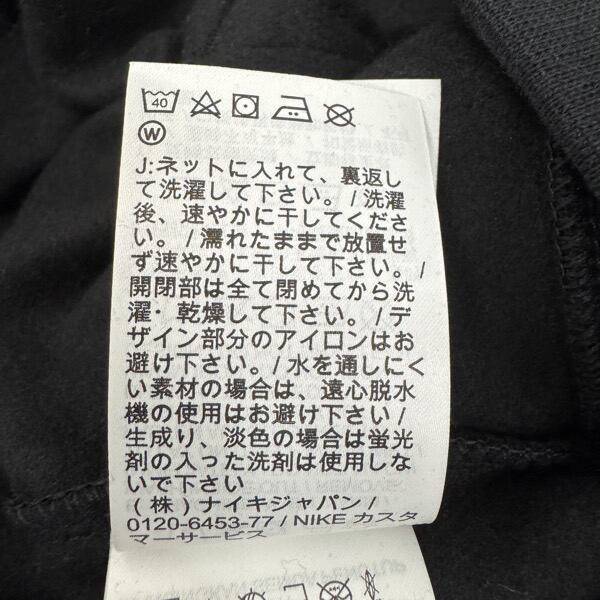 40
W
J:ネットに入れて、裏返し
て洗濯して下さい。/洗濯
後、速やかに干してくださ
い。/濡れたままで放置せ
ず速やかに干して下さい。/
開閉部は全て閉めてから洗
濯・乾燥して下さい。/デ
ザイン部分のアイロンはお
避け下さい。/水を通しにく
い素材の場合は、遠心脱水
機の使用はお避け下さい/
生成り、淡色の場合は蛍光
剤の入った洗剤は使用しな
いで下さい
(株)ナイキジャパン/
0120-6453-77 / NIKE カスタ
マーサービス